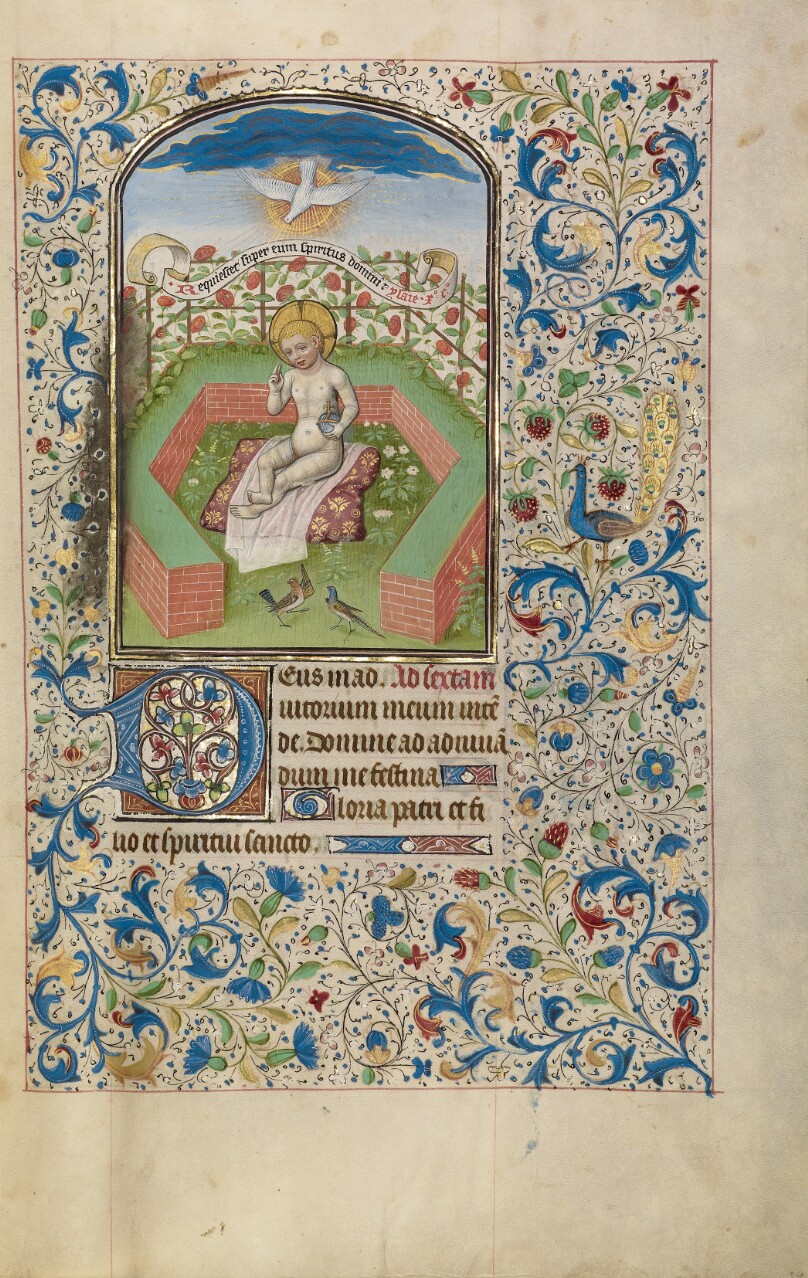 Requiescet super eum spiritus domini · ysaie · xi · c°
Deus in ad. Ad sextam
iutorium meum inte͂
de. Domine ad adiuua͂
dum me festina
Gloria patri et fi
lio et spiritui sancto.